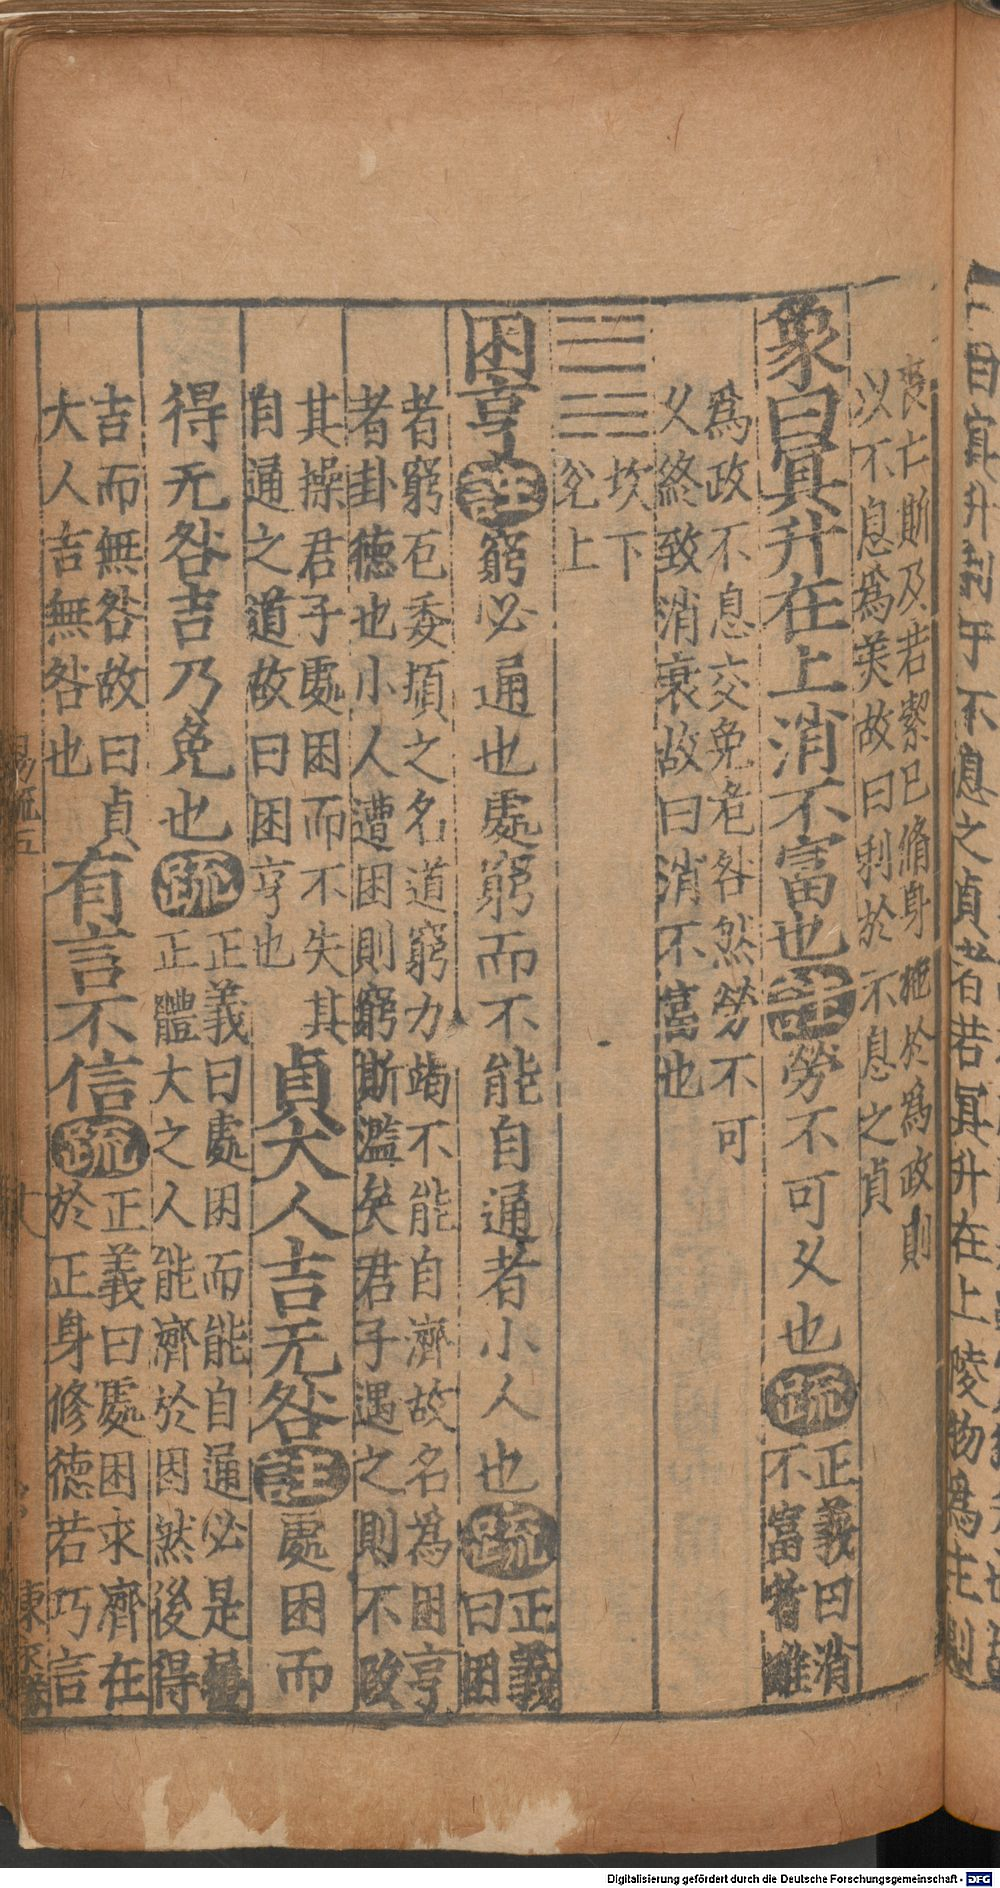 喪亡斯及若潔已脩身施於為政則
以不息爲美故曰利於不息之貞
象曰冥升在上消不富也註勞不可乂也疏正義曰消
不富者雖
爲政不息交免危咎然勞不可
乂終致消衰故曰消不富也
䷮坎下
兌上
困亨註窮必通也處窮而不能自通者小人也疏正義
曰困
者窮厄委頓之名道窮力竭不能自濟故名為困亨
者卦德也小人遭困則窮斯濫矣君子遇之則不改
其操君子處困而不失其
自通之道故曰困亨也
貞大人吉无咎註處困而
得无咎吉乃免也疏正義曰處困而能自通必是履
正體大之人能濟於困然後得
吉而無咎故曰貞
大人吉無咎也
有言不信疏正義曰處困求濟在
於正身修德若巧言
易疏五
十八
Digitalisierung gefördert durch die Deutsche Forschungsgemeinschaft - DFG